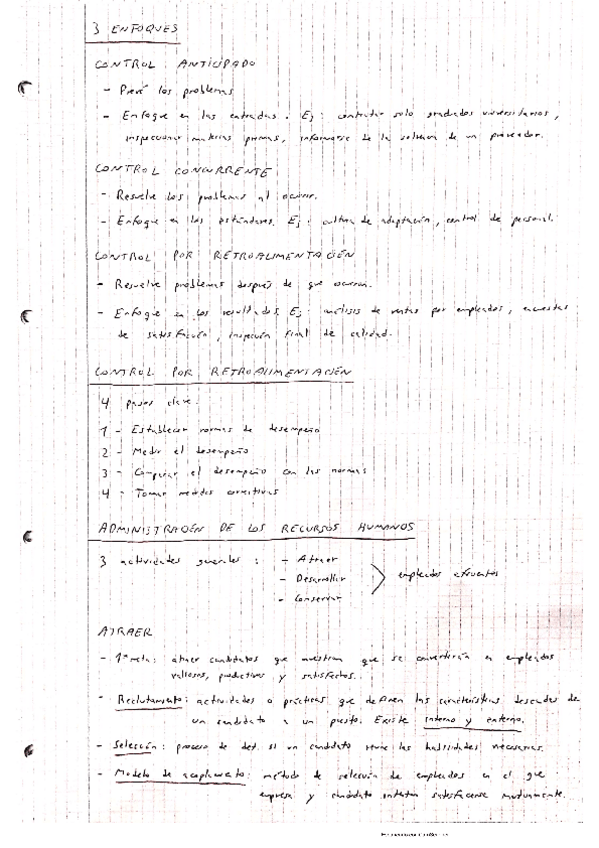 3 ENFOQUES
CONTROL ANTICIPADO
- Prevé los problemas
- Enfoque en las entradas. Ej: contratar solo graduados universitarios,
inspeccionar materias primas, informarse de la solvencia de un proveedor.
CONTROL CONCURRENTE
- Resuelve los problemas al ocurrir.
- Enfoque en los estándares. Ej: cultura de adaptación, control de personal.
CONTROL POR RETROALIMENTACIÓN
- Resuelve problemas después de que ocurran.
- Enfoque en los resultados. Ej: análisis de ventas por empleados, encuestas
de satisfacción, inspección final de calidad.
CONTROL POR RETROALIMENTACIÓN
4 pasos clave:
1 - Establecer normas de desempeño
2 - Medir el desempeño
3 - Comparar el desempeño con las normas
4 - Tomar medidas correctivas
ADMINISTRACIÓN DE LOS RECURSOS HUMANOS
3 actividades generales: - Atraer
- Desarrollar empleados
- Conservar
ATRAER
- 1ª meta: atraer candidatos que muestran que se convertirán en empleados
valiosos, productivos y satisfechos.
- Reclutamiento: actividades o prácticas que definen las características deseadas de
un candidato a un puesto. Existe interno y externo.
- Selección: proceso de det. si un candidato reúne las habilidades necesarias.
- Modelo de acoplamiento: método de selección de empleados en el que
empresa y candidato intentan satisfacerse mutuamente.